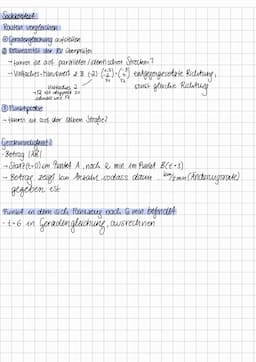 Sachkontext
Routen vergleichen
① Geradengleichung aufstellen
② Kollinearität der RV überprüfen
→ fahren sie auf parallelen/identischen Strecken?
→ Vielfaches-Minuswert z.B. (-2) entgegengesetzte Richtung,
sonst gleiche Richtung
Vielfaches 2
③ Punktprobe
→ fahren sie auf der selben Straße?
Geschwindigkeit
- Betrag |AB|
→ Start (t=0) im Punkt A, nach 2 min im Punkt B (t=1)
→ Betrag zeigt km Anzahl, sodass dann ... km/2min (Änderungsrate)
gegeben ist
Punkt in dem sich Flugzeug nach 6 min befindet
- t=6 in Geradengleichung, ausrechnen